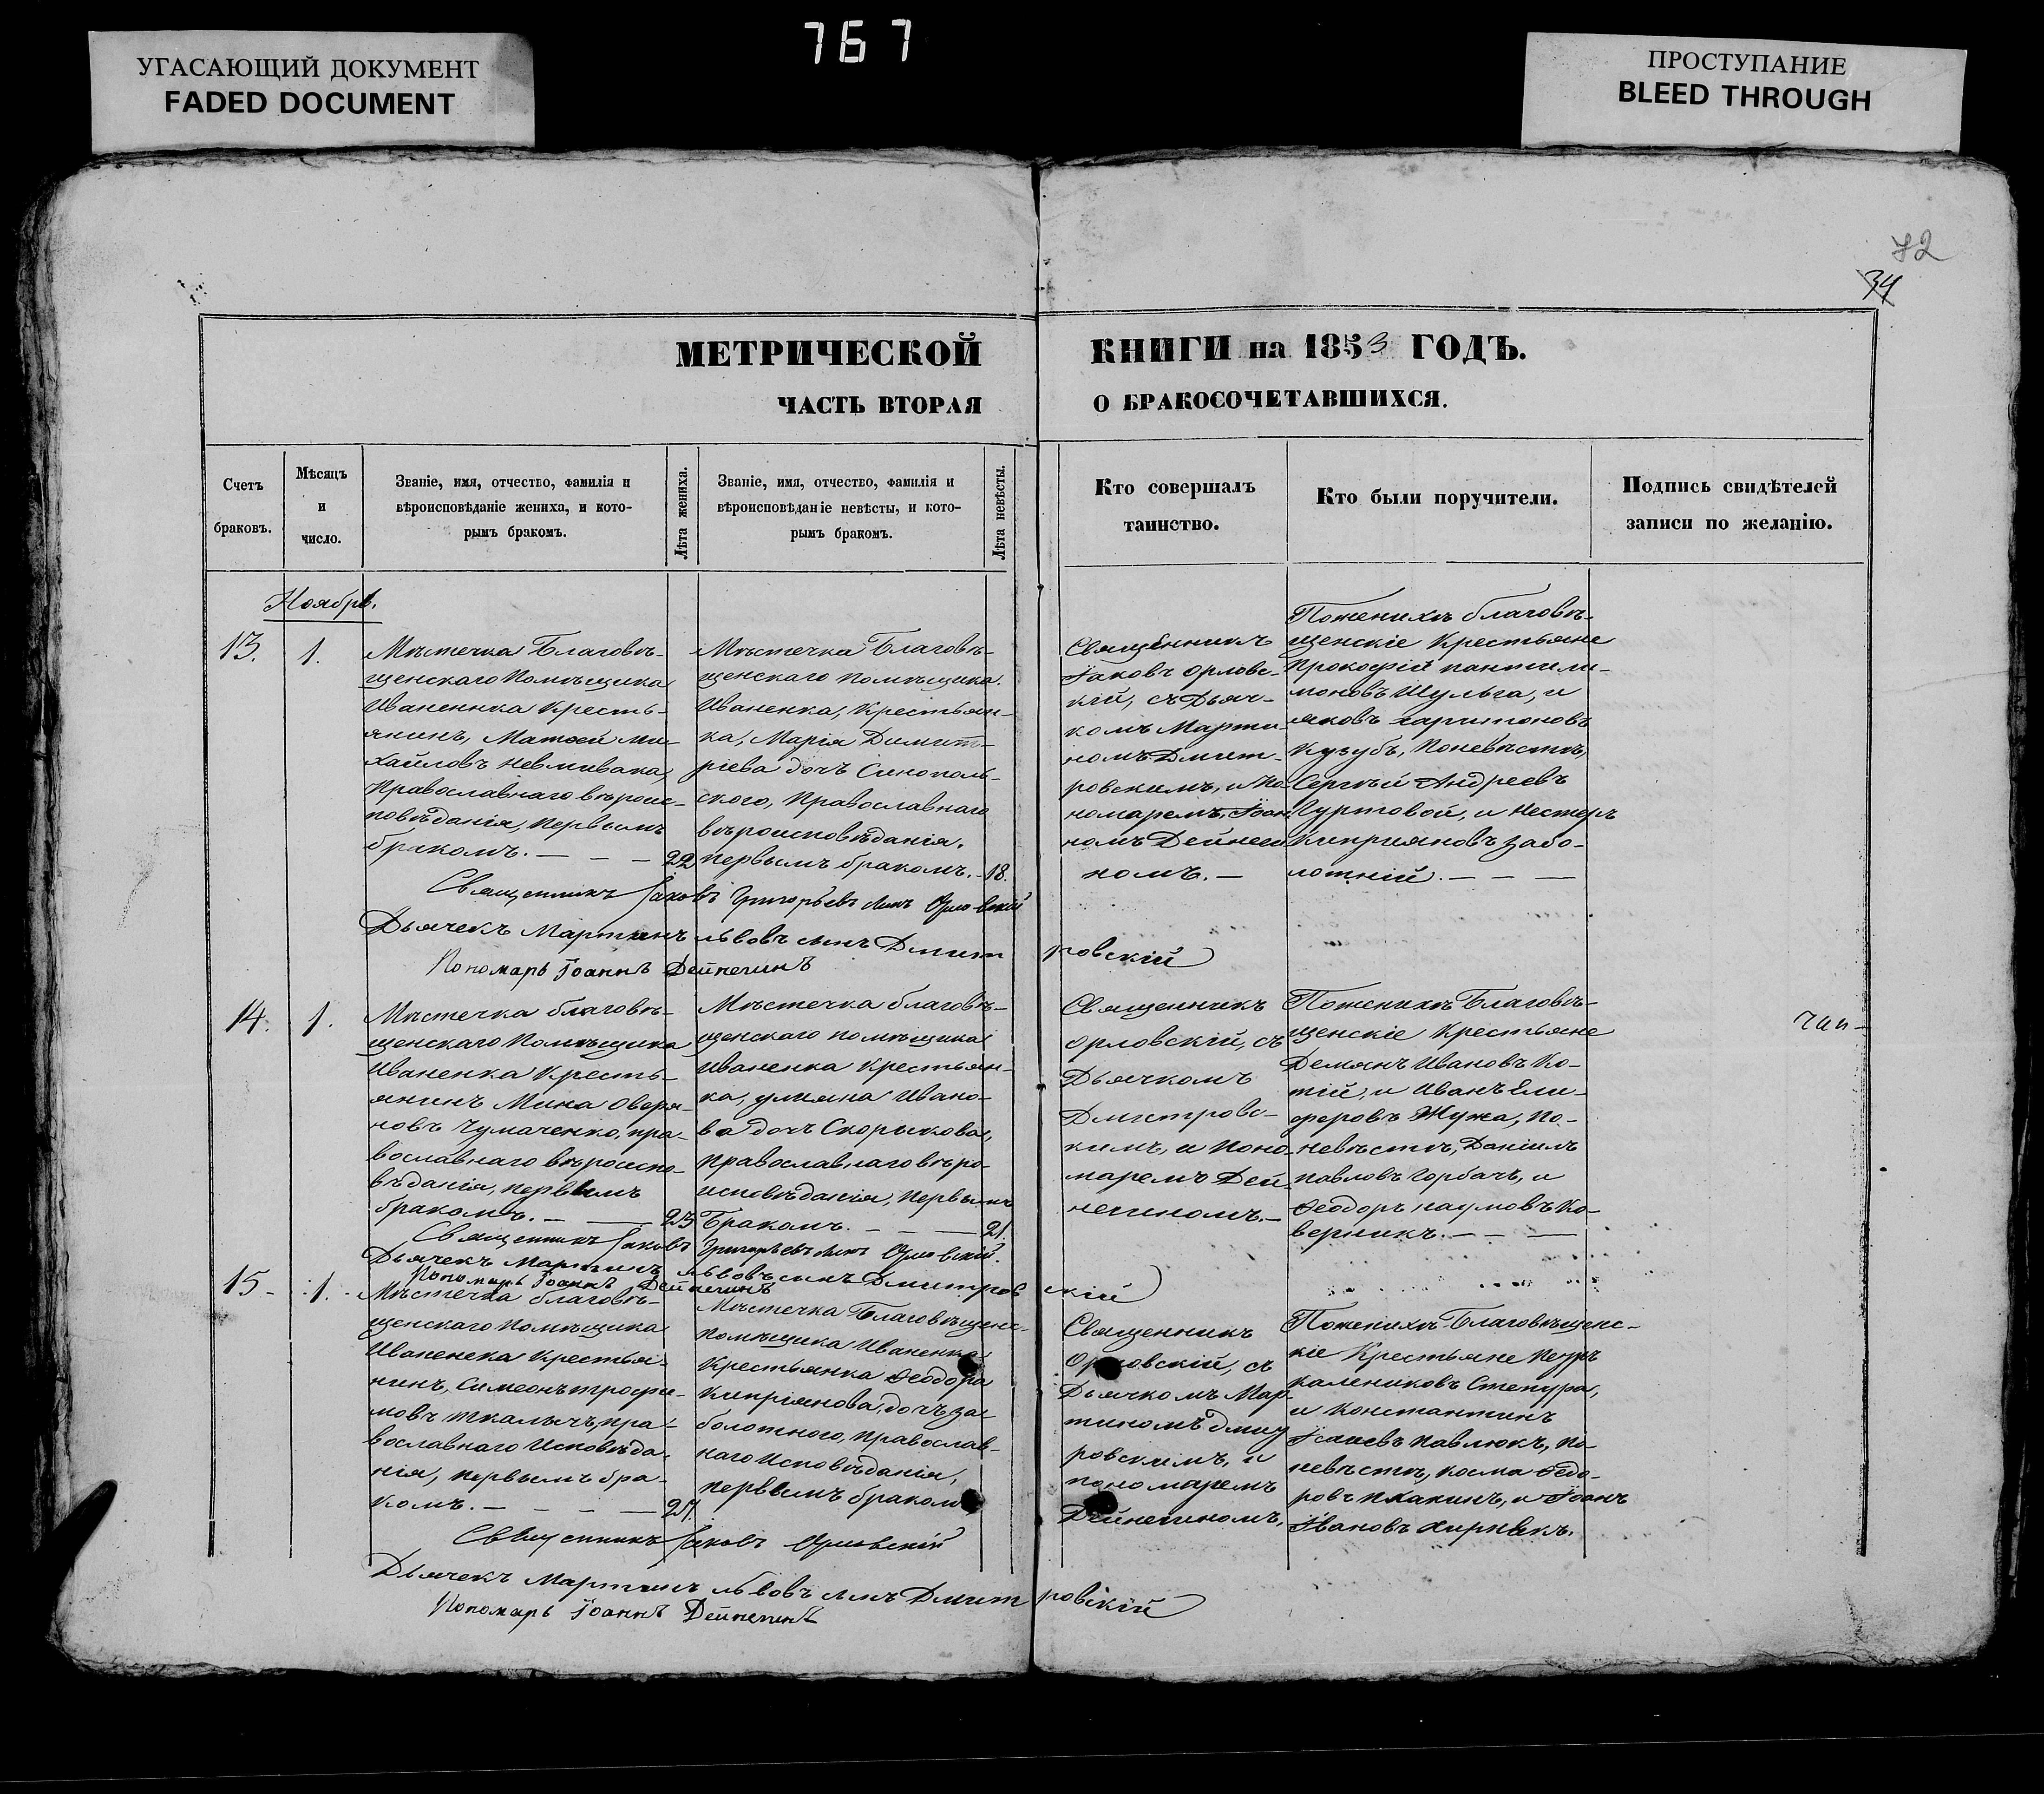 767
УГАСАЮЩИЙ ДОКУМЕНТ
FADED DOCUMENT
ПРОСТУПАНИЕ
BLEED THROUGH
72
34
МЕТРИЧЕСКОЙ
ЧАСТЬ ВТОРАЯ
КНИГИ на 1853 ГОДЪ.
О БРАКОСОЧЕТАВШИХСЯ.
Счетъ
браковъ.
Мѣсяцъ
и
число.
Званіе, имя, отчество, фамилія и
вѣроисповѣданіе жениха, и кото-
рымъ бракомъ.
Лѣта жениха.
Званіе, имя, отчество, фамилія и
вѣроисповѣданіе невѣсты, и кото-
рымъ бракомъ.
Лѣта невѣсты.
Кто совершалъ
таинство.
Кто были поручители.
Подпись свидѣтелей
записи по желанію.
Ноябрь.
13.
1.
Мѣстечка Благовѣ-
щенскаго Помѣщика
Иваненка Кресть-
янинъ, Матѳей Ми-
хайловъ Невмивака
Православнаго вѣроис-
повѣданія, Первымъ
бракомъ. — — —
22
Мѣстечка Благовѣ-
щенскаго Помѣщика
Иваненка, Крестьян-
ка, Марія Димит-
ріева дочь Синополь-
ского, Православнаго
вѣроисповѣданія.
первымъ бракомъ. -
18.
Священникъ
Іаковъ Орловс-
кій, съ Дьяч-
комъ Марти-
номъ Дмит-
ровскимъ, и По-
номаремъ, Іоан-
номъ Дейнеги-
номъ. —
Поженихѣ благовѣ-
щенскіе Крестьяне
Прокофій пантили-
моновъ Шульга, и
яковъ харитоновъ
Кугубъ, Поневѣстѣ,
Сергѣй Андреевъ
Гуртовой, и Нестеръ
Кипріяновъ Забо-
лотній. — — —
Священникъ Іаковъ Григорьевъ синъ Орловскій
Дьячекъ Мартинъ львовъ синъ Дмитровскій
Пономарь Іоаннъ Дейнегинъ
14.
1.
Мѣстечка благовѣ-
щенскаго Помѣщика
Иваненка Кресть-
янинъ Мина Оверя-
новъ Чумаченко, пра-
вославнаго вѣроиспо-
вѣданія, первымъ
бракомъ. — —
23
Мѣстечка благовѣ-
щенскаго помѣщика
Иваненка Крестьян-
ка, улияна Ивано-
ва дочь Скорыкова,
православнаго вѣро-
исповѣданія, Первымъ
Бракомъ. — — —
21.
Священникъ
Орловскій, съ
Дьячкомъ
Дмитровс-
кимъ, и Поно-
маремъ Дей-
негиномъ. —
Поженихѣ Благовѣ-
щенскіе Крестьяне
Демянъ Ивановъ Ко-
тій, и Иванъ Ели-
феровъ Жужа, По-
невѣстѣ, Даніилъ
павловъ Горбачъ, и
Ѳеодоръ наумовъ Ко-
верникъ. — — —
Священникъ Іаковъ Григорьевъ синъ Орловскій.
Дьячекъ Мартинъ львовъ синъ Дмитровскій
Пономарь Іоаннъ Дейнегинъ
15 -
1. -
Мѣстечка благовѣ-
щенскаго Помѣщика
Иваненека Крестья-
нинъ, Симеонъ трофи-
мовъ ткалычъ, пра-
вославнаго Исповѣда-
нія, первымъ бра-
комъ. — — — —
Мѣстечка Благовѣщенс-
Помѣщика Иваненка
Крестьянка Ѳеодора
Кипріянова, дочь за-
болотного, православ-
наго Исповѣданія,
первымъ бракомъ
Священникъ
Орловскій, съ
Дьячкомъ Мар-
тиномъ дмит
ровскимъ, и
пономаремъ
Дейнегиномъ,
Поженихѣ Благовѣщенс-
кіе Крестьяне Петръ
калениковъ Степура,
и Константинъ
Исаиевъ Павлюкъ, по-
невѣстѣ, Косма Ѳедо-
ровъ и Іоанъ
Ивановъ
Священникъ Іаковъ Орловскій
Дьячекъ Мартинъ львовъ синъ Дмитровскій
Пономарь Іоаннъ Дейнегинъ